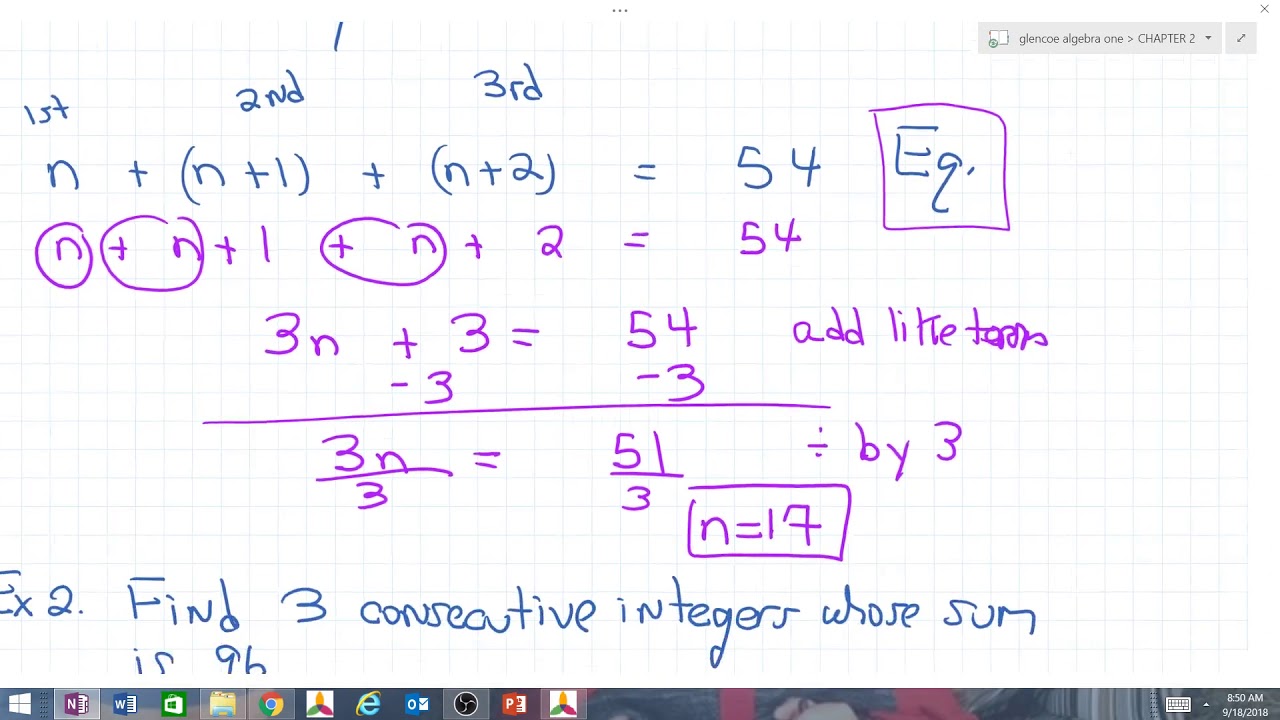 glencoe algebra one > CHAPTER 2
1st 2nd 3rd
n + (n+1) + (n+2) = 54 Eq.
n + n + 1 + n + 2 = 54
3n + 3 = 54 add like terms
-3 -3
3n = 51 ÷ by 3
3 3
n=17
Ex 2. Find 3 consecutive integers whose sum
is 96
8:50 AM
9/18/2018